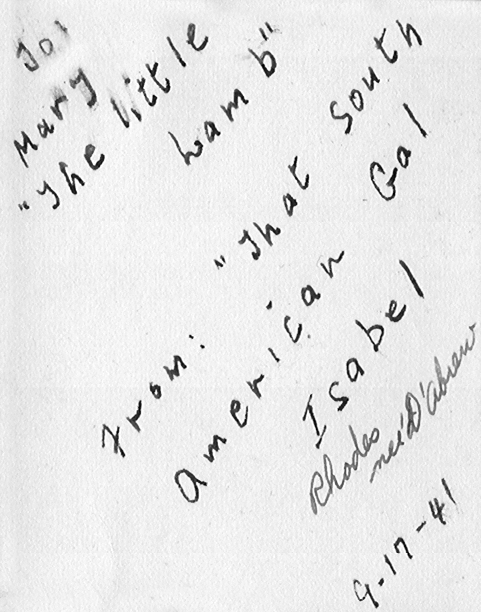 To:
Mary
"The little
Lamb"
From: "That South
American Gal
Isabel
Rhodes
neé D'Abreu
9-17-41